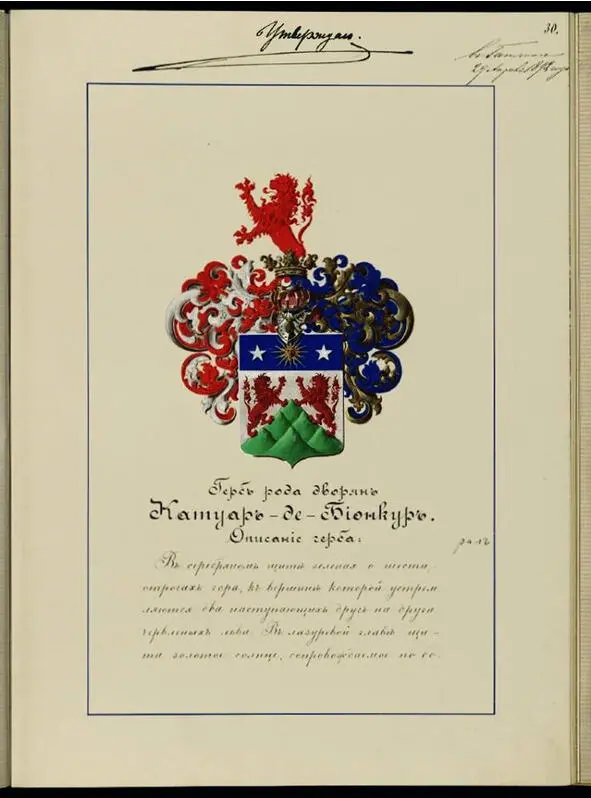 Утверждаю.
30.
Гербъ рода дворянъ
Катуаръ-де-Біонкуръ.
Описаніе герба:
Въ серебряномъ щитѣ зеленая о шести
острогахъ гора, къ вершинѣ которой устрем
ляются два наступающихъ другъ на друга
червленыхъ льва. Въ лазуревой главѣ щи-
та золотое солнце, сопровождаемое по со-